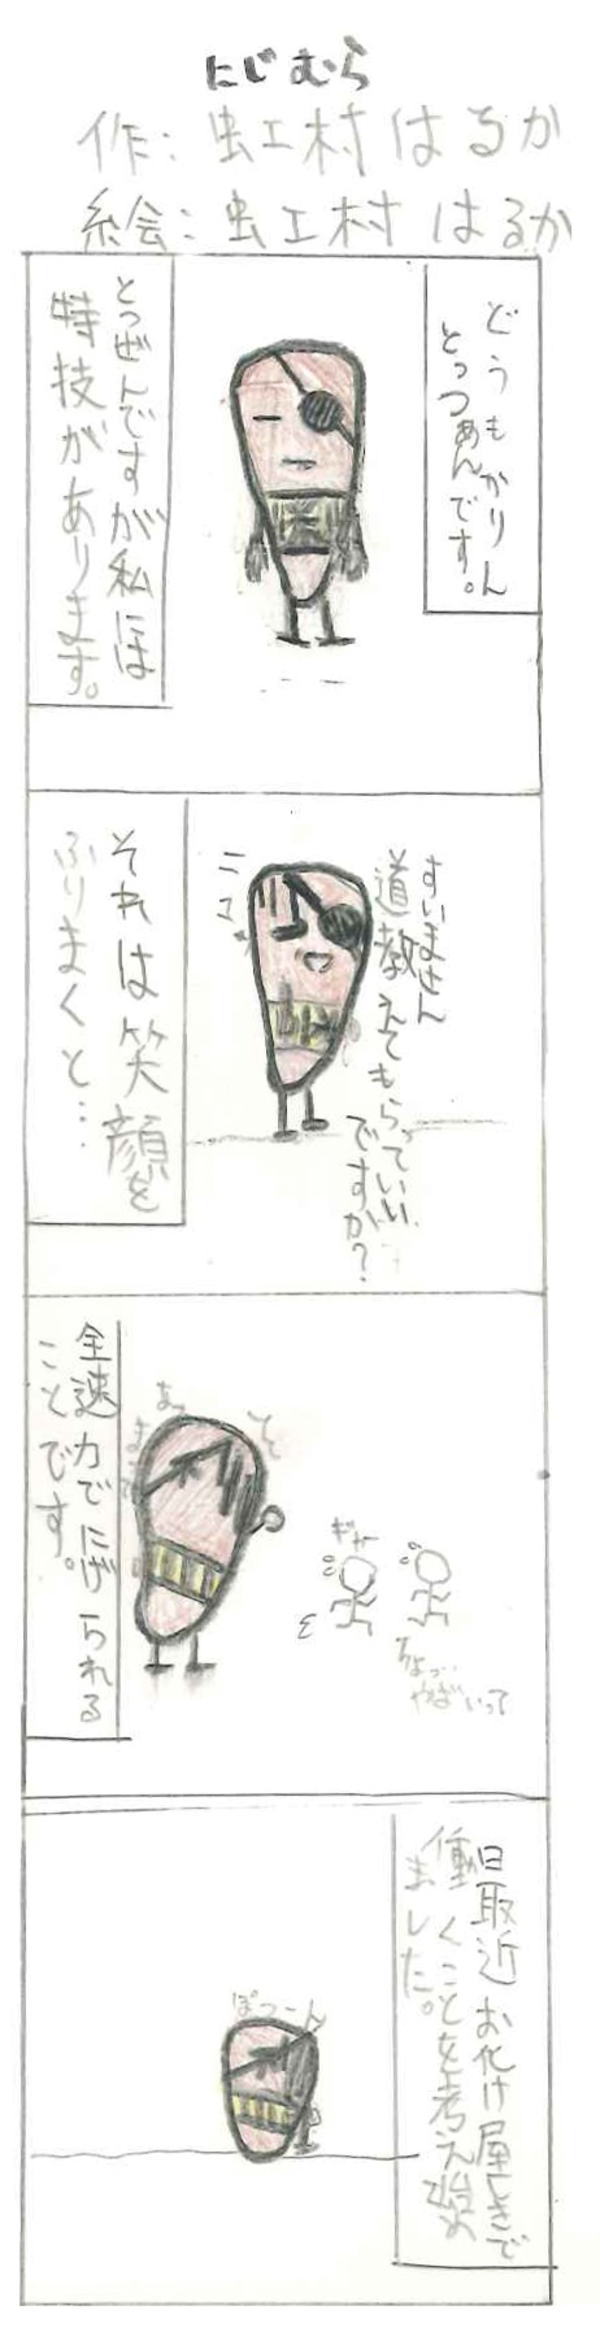 にじむら
作:虹村はるか
絵:虹村はるか
どうもかりん
とっつぁんです。
とつぜんですが私には
特技があります。
すいません
道教えてもらっていい
ですか?
ニコッ
それは笑顔を
ふりまくと…
まって
ギャー
ちょっ…
やばいって
全速力でにげられる
ことです。
最近お化け屋しきで
働くことを考え始め
ました。
ぽつーん